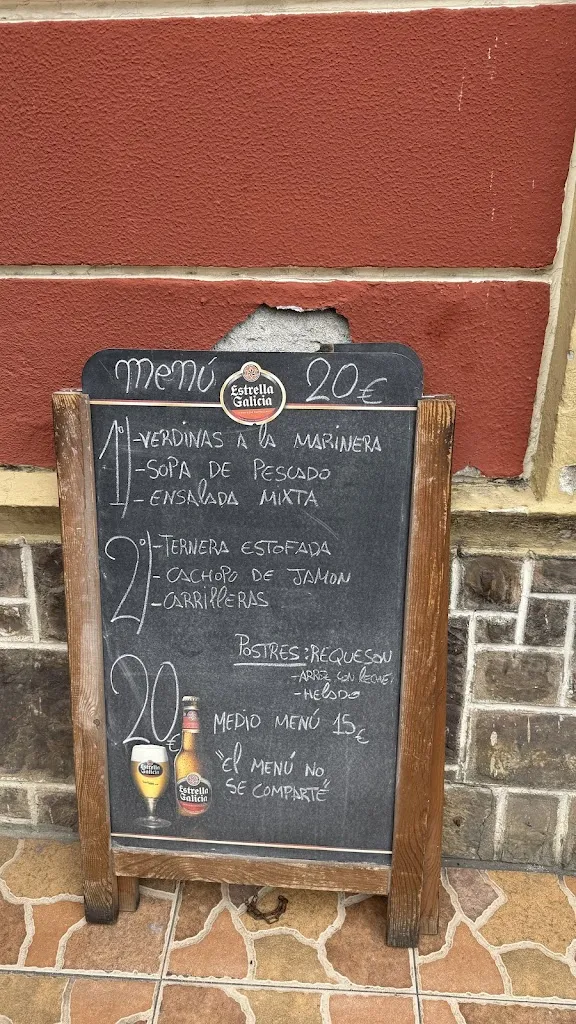 menú 20€
Estrella
Galicia
1º -VERDINAS A la MARINERA
-SOPA DE PESCADO
-ENSALADA MIXTA
2º -TERNERA ESTOFADA
-CACHOPO DE JAMON
-CARRILLERAS
POSTRES: REQUESON
-ARROZ CON LECHE
-HELADO
20€
MEDIO MENÚ 15€
"El MENÚ NO
SE COMPARTE"
Estrella
Galicia
Estrella
Galicia